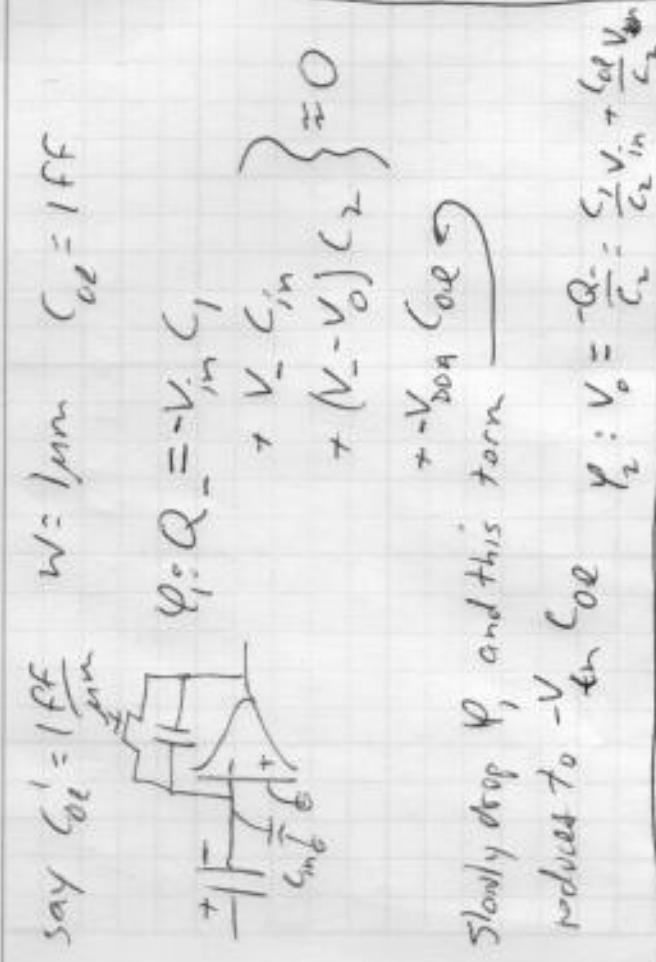 say C'ol = 1fF/μm   W = 1μm   Col = 1fF
φ1: Q_ = -Vin C1
+ V_ Cin
+ (V_ - Vo) C2
} ≈ 0
+ -VDOn Col
+ -
- +
Cin
Slowly drop φ1 and this term
reduces to -Vtn Col
φ2: Vo = -Q_/C2 = C1/C2 Vin + Col/C2 Vtn